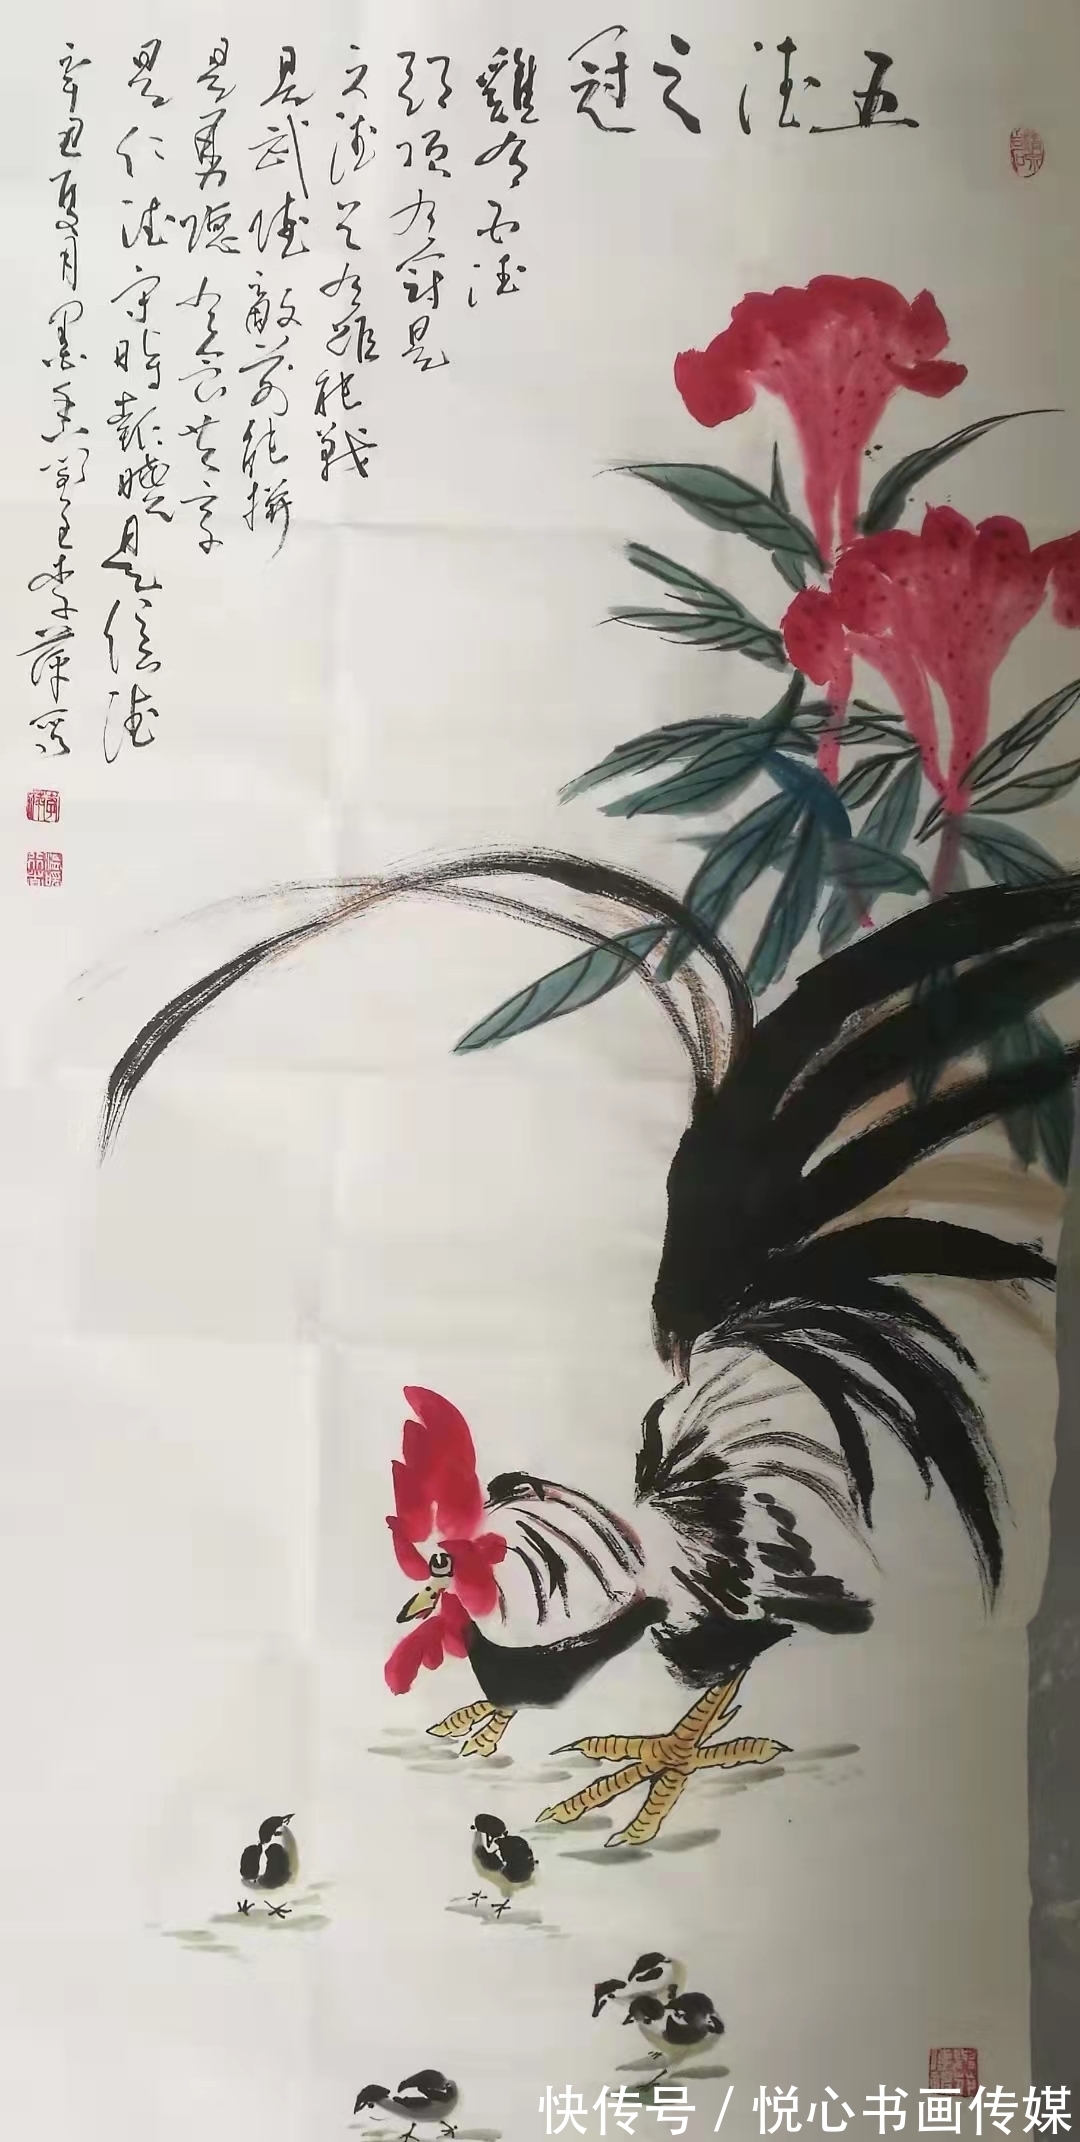 五德之冠
雞有五德
頭頂有冠是
文德足有距能戰
是武德敵前能拼
是勇德有食共享
是仁德守時報曉是信德
辛丑夏月墨香
快传号/悦心书画传媒